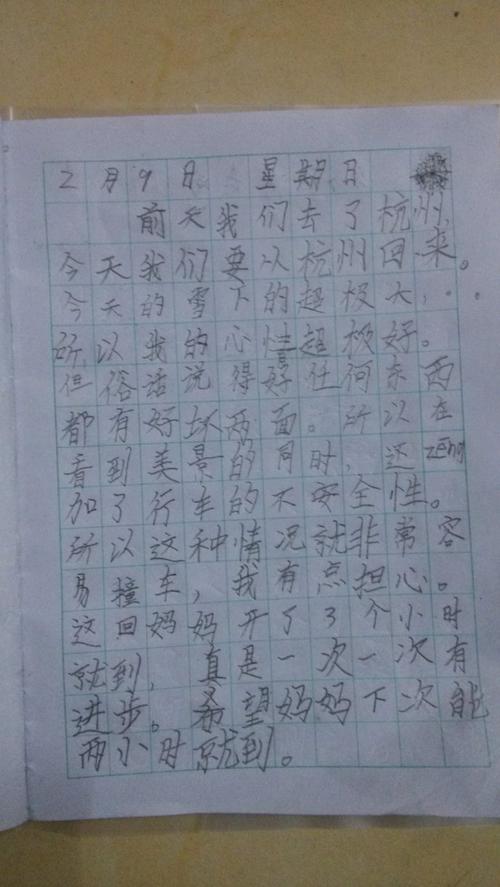 2月9日 星期日
前天我们去了杭州,
今天我们要从杭州回来。
今天的雪下的超极大,
所以我的心性超极好。
但俗话说得好任何东西
都有好坏两面。所以在
看到美景的同时,还zēng
加了行车的不安全性。
所以这种情况就非常容
易撞车,我有点担心。
这回妈妈开了3个小时
就到,真是一次一次有
进步。希望妈妈下次能
两小时就到。